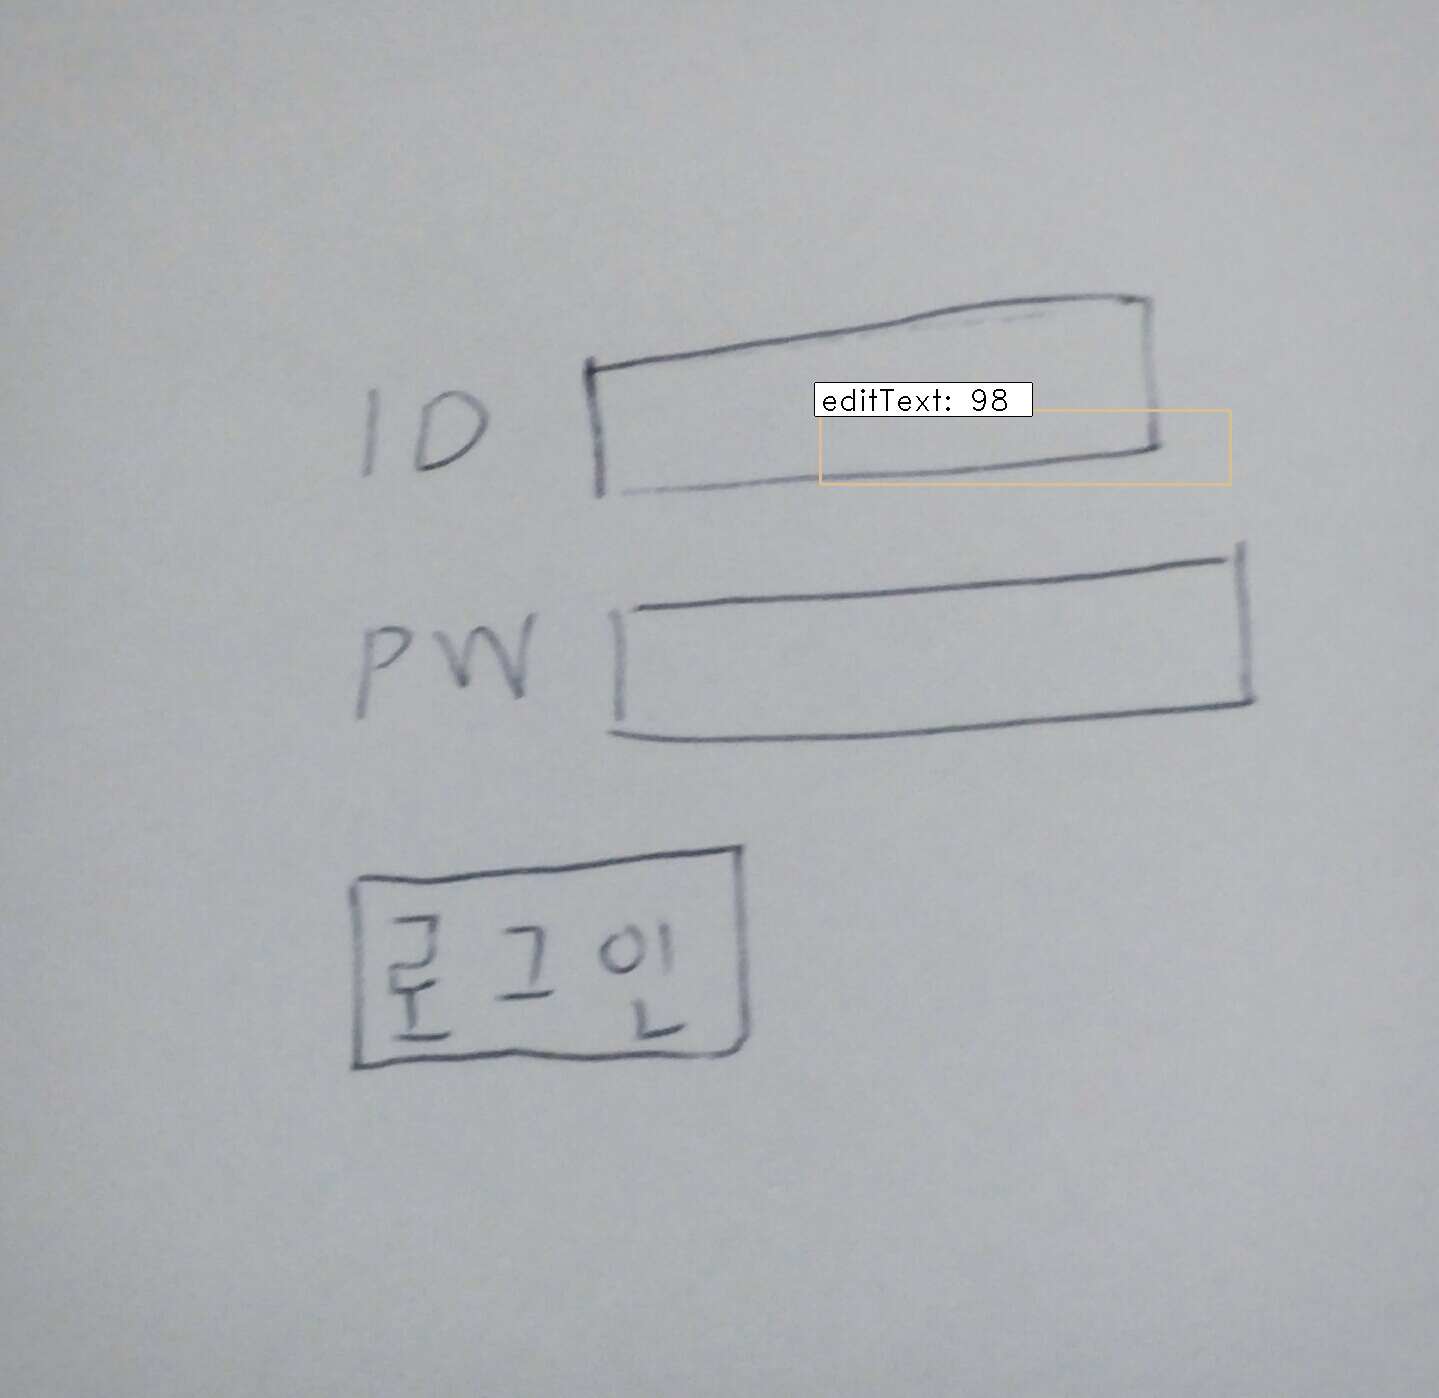 ID
editText: 98
PW
로그인